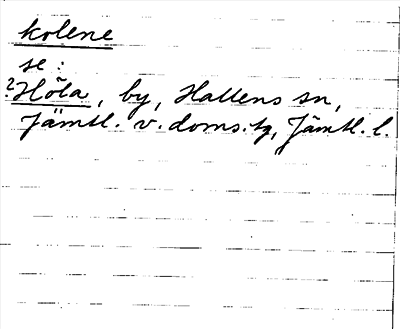 kolene
se:
?Höla, by, Hallens sn,
Jämtl. v. doms. tg, Jämtl. l.